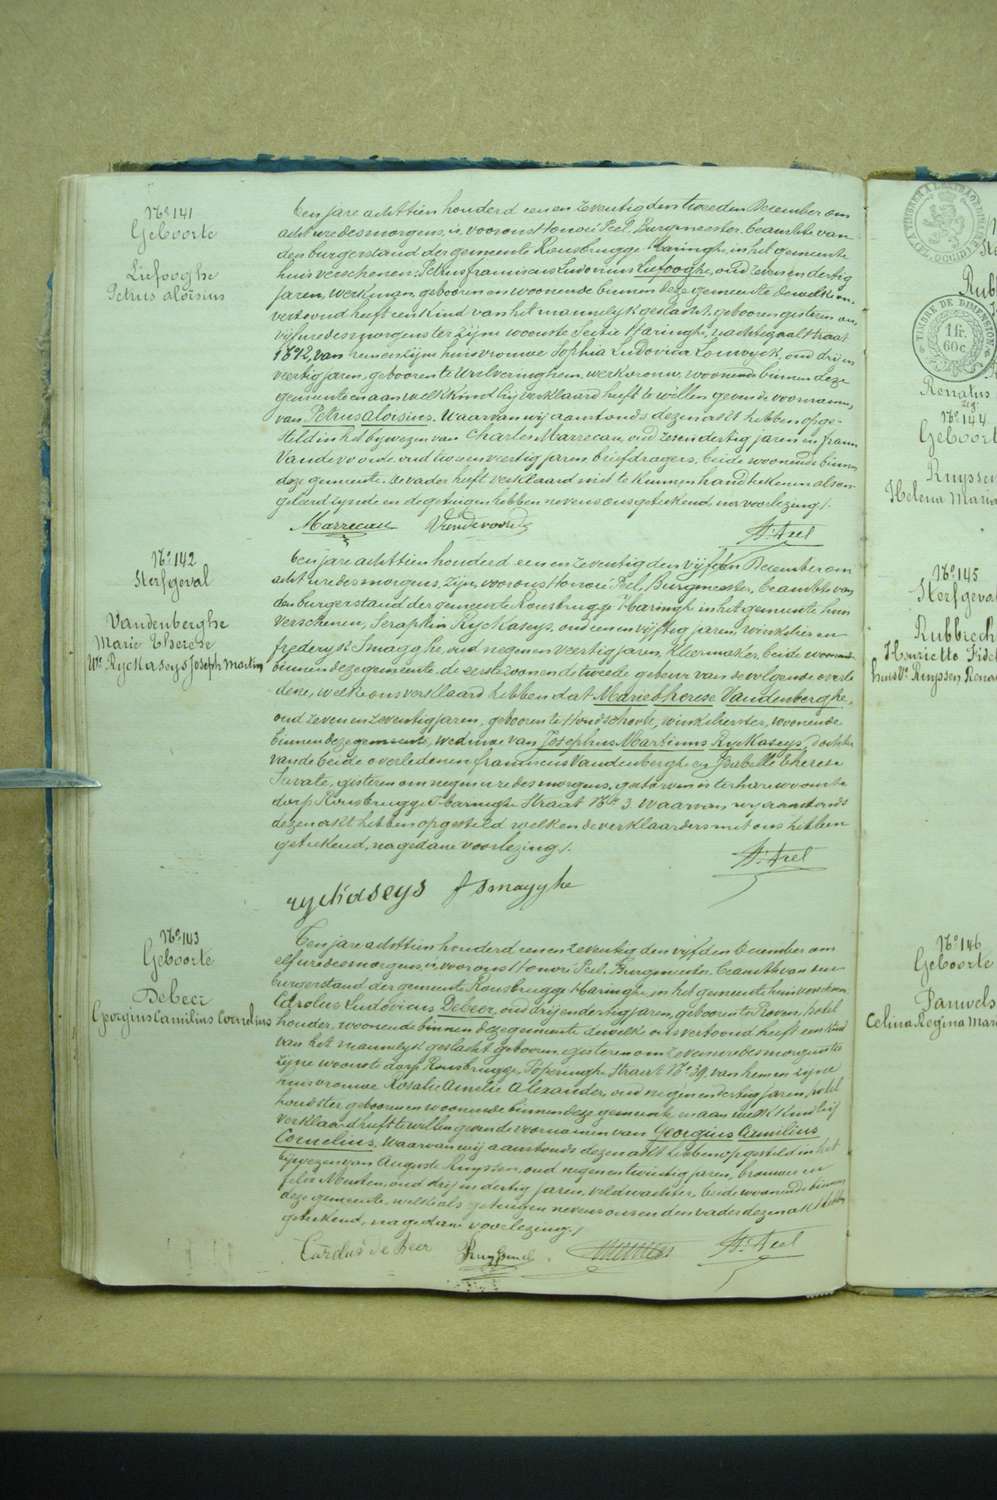 No 141
Geboorte
Liefooghe
Petrus aloïsius
Ten jare achttien honderd een en zeventig den tweeden December om
acht ure des morgens, is voor ons Honoré Peel, Burgmeester, beambte van
den burgerstand der gemeente Rousbrugge-Haringhe, in het gemeente
huis verschenen: Petrus franciscus Ludovicus Liefooghe, oud zeven en dertig
jaren, werkman, geboren en woonende binnen deze gemeente dewelke ons
vertoond heeft een kind van het mannelyk geslacht, geboren gisteren om
vijf ure des morgens ter zijne woonste Sectie Haringhe, nachtegaal straat
No 2, van hem en zijne huisvrouwe Sophia Ludovica Louwyck, oud drij en
veertig jaren, geboren te Wulveringhem, werkvrouw, woonende binnen deze
gemeente en aan welk kind hij verklaard heeft te willen geven de voornamen
van Petrus aloïsius. Waarvan wij aanstonds dezen akt hebben opge-
steld in het bywezen van Charles Marrecau, oud zeven dertig jaren en frans
Vandevoorde, oud twee en veertig jaren briefdragers, beide woonende binnen
deze gemeente. De vader heeft verklaard niet te kunnen handtekenen als on-
geleerd zynde en de getuigen hebben nevens ons geteekend, na voorlezing /.
Marrecau Vandevoorde H. Peel
No 142
Sterfgeval
Vandenberghe
Marie Therese
We Ryckaseys Joseph Martin
Ten jare achttien honderd een en zeventig den vyfden December om
acht ure des morgens, zijn voor ons Honoré Peel, Burgmeester, beambte van
den burgerstand der gemeente Rousbrugge-Haringhe in het gemeente huis
verschenen, Seraphin Ryckaseys, oud een en vyftig jaren, winkelier en
frederyck Smagghe, oud negen en veertig jaren, kleermaker, beide woonende
binnen deze gemeente, de eerste zoon en de tweede gebuur van de volgende overle
dene, welke ons verklaard hebben dat Marie Therese Vandenberghe,
oud zeven en zeventig jaren, geboren te Hondschoote, winkelierster, woonende
binnen deze gemeente, weduwe van Josephus Martinus Ryckaseys, dochter
van de beide overledenen franciscus Vandenberghe en Isabelle Therese
gisteren om negen ure des morgens, gestorven is ter hare woonste
dorp Rousbrugge-Haringhe Straat No 3. Waarvan wy aanstonds
dezen akt hebben opgesteld welken de verklaarders met ons hebben
geteekend, na gedane voorlezing /.
H. Peel
rychaseys f Smagghe
No 143
Geboorte
Debeer
Georgius Camilius Cornelius
Ten jare achttien honderd een en zeventig den vijfden December om
elf ure des morgens, is voor ons Honoré Peel, Burgmeester, beambte van den
burgerstand der gemeente Rousbrugge-Haringhe, in het gemeente huis verschenen
Carolus Ludovicus Debeer, oud drij en dertig jaren, geboren te Proven,
houder, woonende binnen deze gemeente dewelk ons vertoond heeft een kind
van het mannelyk geslacht, geboren gisteren om zeven ure des morgens ter
zijne woonste dorp Rousbrugge, Poperinghe Straat No 39, van hem en zyne
huisvrouwe Rosalie Amelie Alexander, oud negen en dertig jaren,
houdster, geboren en woonende binnen deze gemeente, en aan welk kind hij
verklaard heeft te willen geven de voornamen van Georgius Camilius
Cornelius. Waarvan wij aanstonds dezen akt hebben opgesteld in het
bijwezen van Auguste Ruyssen, oud negen en twintig jaren, brouwer en
felix oud drij en dertig jaren, veldwachter, beide woonende binnen
deze gemeente, welke als getuigen nevens ons en den vader dezen akt hebben
geteekend, na gedane voorlezing /.
Carolus de Beer H. Peel
TIMBRE DE DIMENSION
1 fr.
60 c.
Renatus
No 144
Geboorte
Ruyssen
Helena Maria
No 145
Sterfgeval
Rubbrech
Henriette Fidel
huisve Ruyssen Rena
No 146
Geboorte
Pauwels
Celina Regina Mar